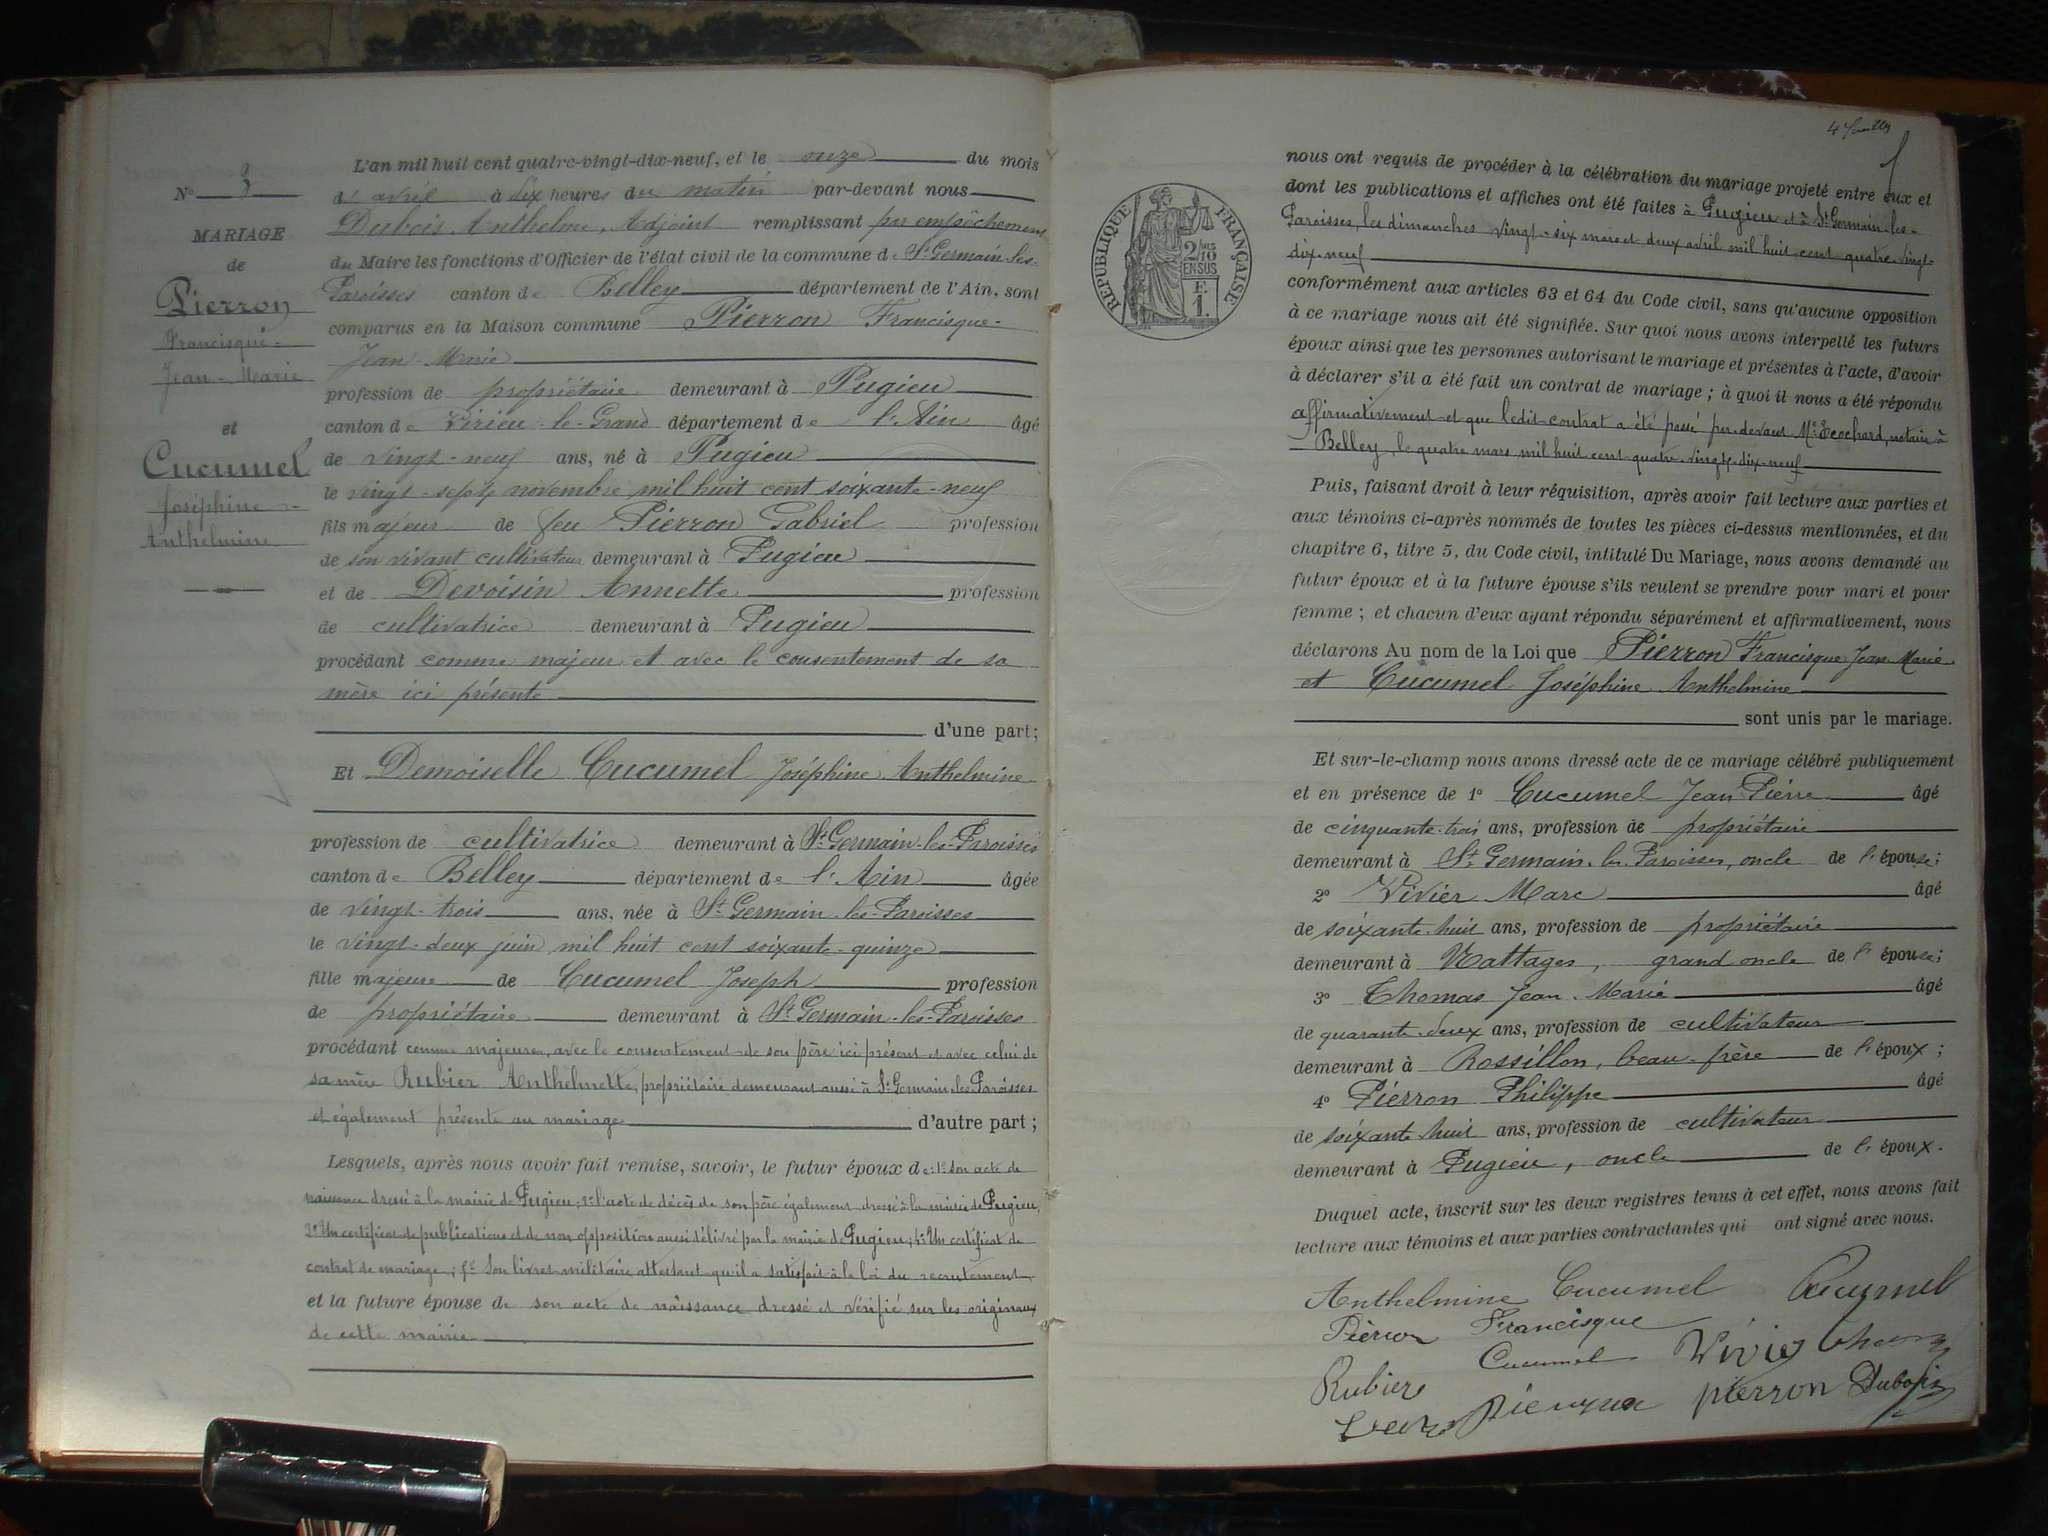 L'an mil huit cent quatre-vingt-dix-neuf, et le onze du mois
d'avril à dix heures du matin par-devant nous
Dubois Anthelme, Adjoint remplissant par empêchement
du Maire les fonctions d'Officier de l'état civil de la commune de St Germain-les-
Paroisses canton de Belley département de l'Ain, sont
comparus en la Maison commune Pierron Francisque-
Jean-Marie
profession de propriétaire demeurant à Pugieu
canton de Virieu-le-Grand département de l'Ain âgé
de vingt-neuf ans, né à Pugieu
le vingt-sept novembre mil huit cent soixante-neuf
fils majeur de feu Pierron Gabriel profession
de son vivant cultivateur demeurant à Pugieu
et de Devoisin Annette profession
de cultivatrice demeurant à Pugieu
procédant comme majeur et avec le consentement de sa
mère ici présente
d'une part;
Et Demoiselle Cucumel Joséphine Anthelmine
profession de cultivatrice demeurant à St Germain-les-Paroisses
canton de Belley département de l'Ain âgée
de vingt-trois ans, née à St Germain-les-Paroisses
le vingt-deux juin mil huit cent soixante-quinze
fille majeure de Cucumel Joseph profession
de propriétaire demeurant à St Germain-les-Paroisses
procédant comme majeure, avec le consentement de son père ici présent et avec celui de
sa mère Rubier Anthelmette, propriétaire demeurant aussi à St Germain-les-Paroisses
et également présente au mariage d'autre part;
Lesquels, après nous avoir fait remise, savoir, le futur époux de: 1° son acte de
naissance dressé à la mairie de Pugieu; 2° l'acte de décès de son père également dressé à la mairie de Pugieu;
3° Un certificat de publications et de non opposition aussi délivré par la mairie de Pugieu; 4° Un certificat de
contrat de mariage; 5° Son livret militaire attestant qu'il a satisfait à la loi du recrutement
et la future épouse de son acte de naissance dressé et vérifié sur les originaux
de cette mairie
N° 3
MARIAGE
de
Pierron
Francisque-
Jean-Marie
et
Cucumel
Joséphine-
Anthelmine
RÉPUBLIQUE FRANÇAISE
2/10
EN SUS
F.
1.
nous ont requis de procéder à la célébration du mariage projeté entre eux et
dont les publications et affiches ont été faites à Pugieu et à St Germain-les-
Paroisses, les dimanches vingt-six mars et deux avril mil huit cent quatre-vingt-
dix-neuf
conformément aux articles 63 et 64 du Code civil, sans qu'aucune opposition
à ce mariage nous ait été signifiée. Sur quoi nous avons interpellé les futurs
époux ainsi que les personnes autorisant le mariage et présentes à l'acte, d'avoir
à déclarer s'il a été fait un contrat de mariage; à quoi il nous a été répondu
affirmativement et que ledit contrat a été passé par-devant Me notaire à
Belley, le quatre mars mil huit cent quatre-vingt-dix-neuf
Puis, faisant droit à leur réquisition, après avoir fait lecture aux parties et
aux témoins ci-après nommés de toutes les pièces ci-dessus mentionnées, et du
chapitre 6, titre 5, du Code civil, intitulé Du Mariage, nous avons demandé au
futur époux et à la future épouse s'ils veulent se prendre pour mari et pour
femme; et chacun d'eux ayant répondu séparément et affirmativement, nous
déclarons Au nom de la Loi que Pierron Francisque Jean-Marie
et Cucumel Joséphine Anthelmine
sont unis par le mariage.
Et sur-le-champ nous avons dressé acte de ce mariage célébré publiquement
et en présence de 1° Cucumel Jean Pierre âgé
de cinquante-trois ans, profession de propriétaire
demeurant à St Germain-les-Paroisses, oncle de l'épouse;
2° Vivier Marc âgé
de soixante-huit ans, profession de propriétaire
demeurant à Nattages, grand oncle de l'épouse;
3° Thomas Jean-Marie âgé
de quarante-deux ans, profession de cultivateur
demeurant à Rossillon, beau-frère de l'époux;
4° Pierron Philippe âgé
de soixante-huit ans, profession de cultivateur
demeurant à Pugieu, oncle de l'époux.
Duquel acte, inscrit sur les deux registres tenus à cet effet, nous avons fait
lecture aux témoins et aux parties contractantes qui ont signé avec nous.
Anthelmine Cucumel Cucumel
Pierron Francisque
Cucumel Vivier Thomas
Rubier pierron Dubois